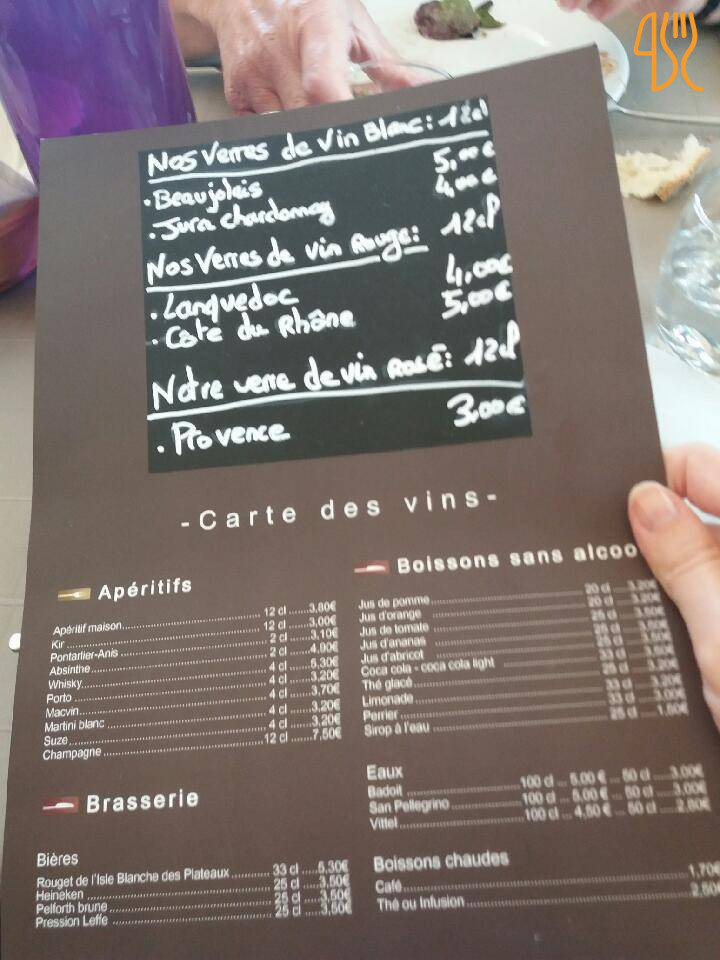 Nos Verres de Vin Blanc: 12cl
• Beaujolais 5,00€
• Jura chardonnay 4,00€
Nos Verres de vin Rouge: 12cl
• Languedoc 4,00€
• Côte du Rhône 5,00€
Notre verre de vin Rosé: 12cl
• Provence 3,00€
-Carte des vins-
Apéritifs
Apéritif maison 12 cl 3,80€
Kir 12 cl 3,00€
Pontarlier-Anis 2 cl 3,10€
Absinthe 2 cl 4,90€
Whisky 4 cl 5,30€
Porto 4 cl 3,20€
Macvin 4 cl 3,70€
Martini blanc 4 cl 3,20€
Suze 4 cl 3,20€
Champagne 12 cl 7,50€
Brasserie
Bières
Rouget de l'Isle Blanche des Plateaux 33 cl 5,30€
Heineken 25 cl 3,50€
Pelforth brune 25 cl 3,50€
Pression Leffe 25 cl 3,50€
Boissons sans alcoo
Jus de pomme 20 cl 3,20€
Jus d'orange 20 cl 3,20€
Jus de tomate 25 cl 3,50€
Jus d'ananas 25 cl 3,50€
Jus d'abricot 25 cl 3,50€
Coca cola - coca cola light 33 cl 3,50€
Thé glacé 25 cl 3,20€
Limonade 33 cl 3,20€
Perrier 33 cl 3,00€
Sirop à l'eau 25 cl 1,50€
Eaux
Badoit 100 cl 5,00 € 50 cl 3,00€
San Pellegrino 100 cl 5,00 € 50 cl 3,00€
Vittel 100 cl 4,50 € 50 cl 2,80€
Boissons chaudes
Café 1,70€
Thé ou Infusion